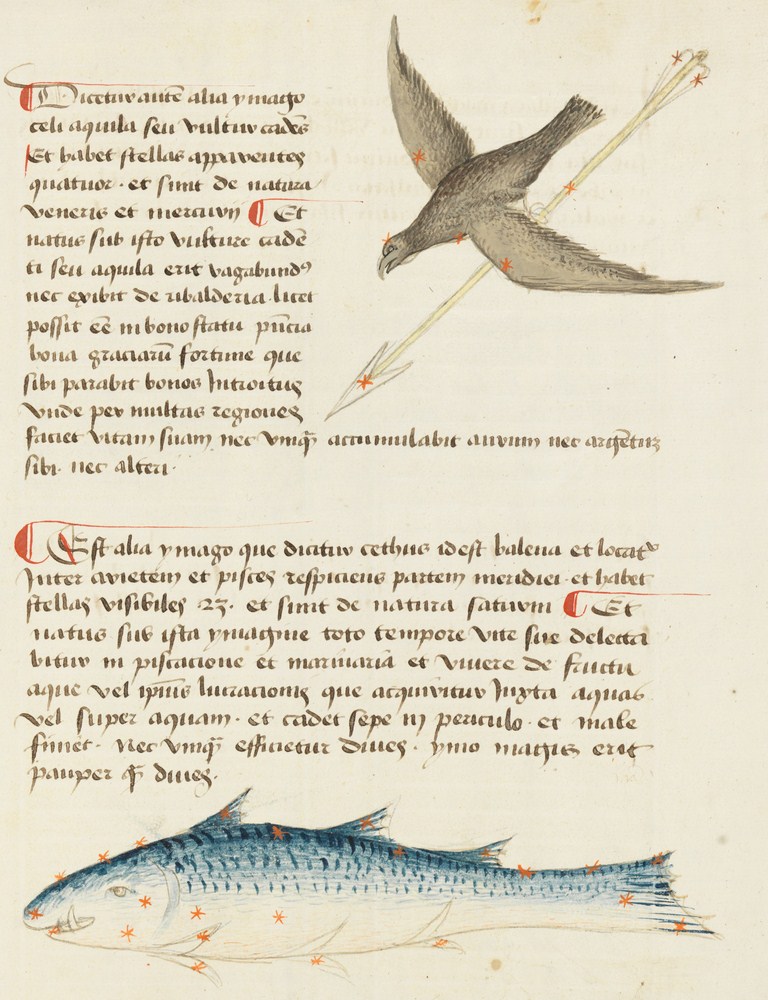 Dicetur autē alia ymago
celi aquila seu vultur cadēs
Et habet stellas apparentes
quatuor · et sunt de natura
veneris et mercurij Et
natus sub isto vulture cadē
ti seu aquila erit vagabundꝰ
nec exibit de ribalderia licet
possit eē in bono statu
bona graciarū fortune que
sibi parabit bonos Introitus
vnde per multas regiones
faciet vitam suam nec vnqᷓ accumulabit aurum nec argētum
sibi · nec alteri ·
Est alia ymago que dicitur cethus idest balena et locatᷣ
Inter arietem et pisces respiciens partem meridiei · et habet
stellas visibiles 23 · et sunt de natura saturni Et
natus sub ista ymagine toto tempore vite sue delecta
bitur in piscacione et marinaria et vivere de fructu
aque vel ipsius lucracionis que acquiritur Juxta aquas
vel super aquam · et cadet sepe in periculo · et male
finiet · Nec vnqᷓ efficietur diues · ymo magis erit
pauper qᷓ diues ·